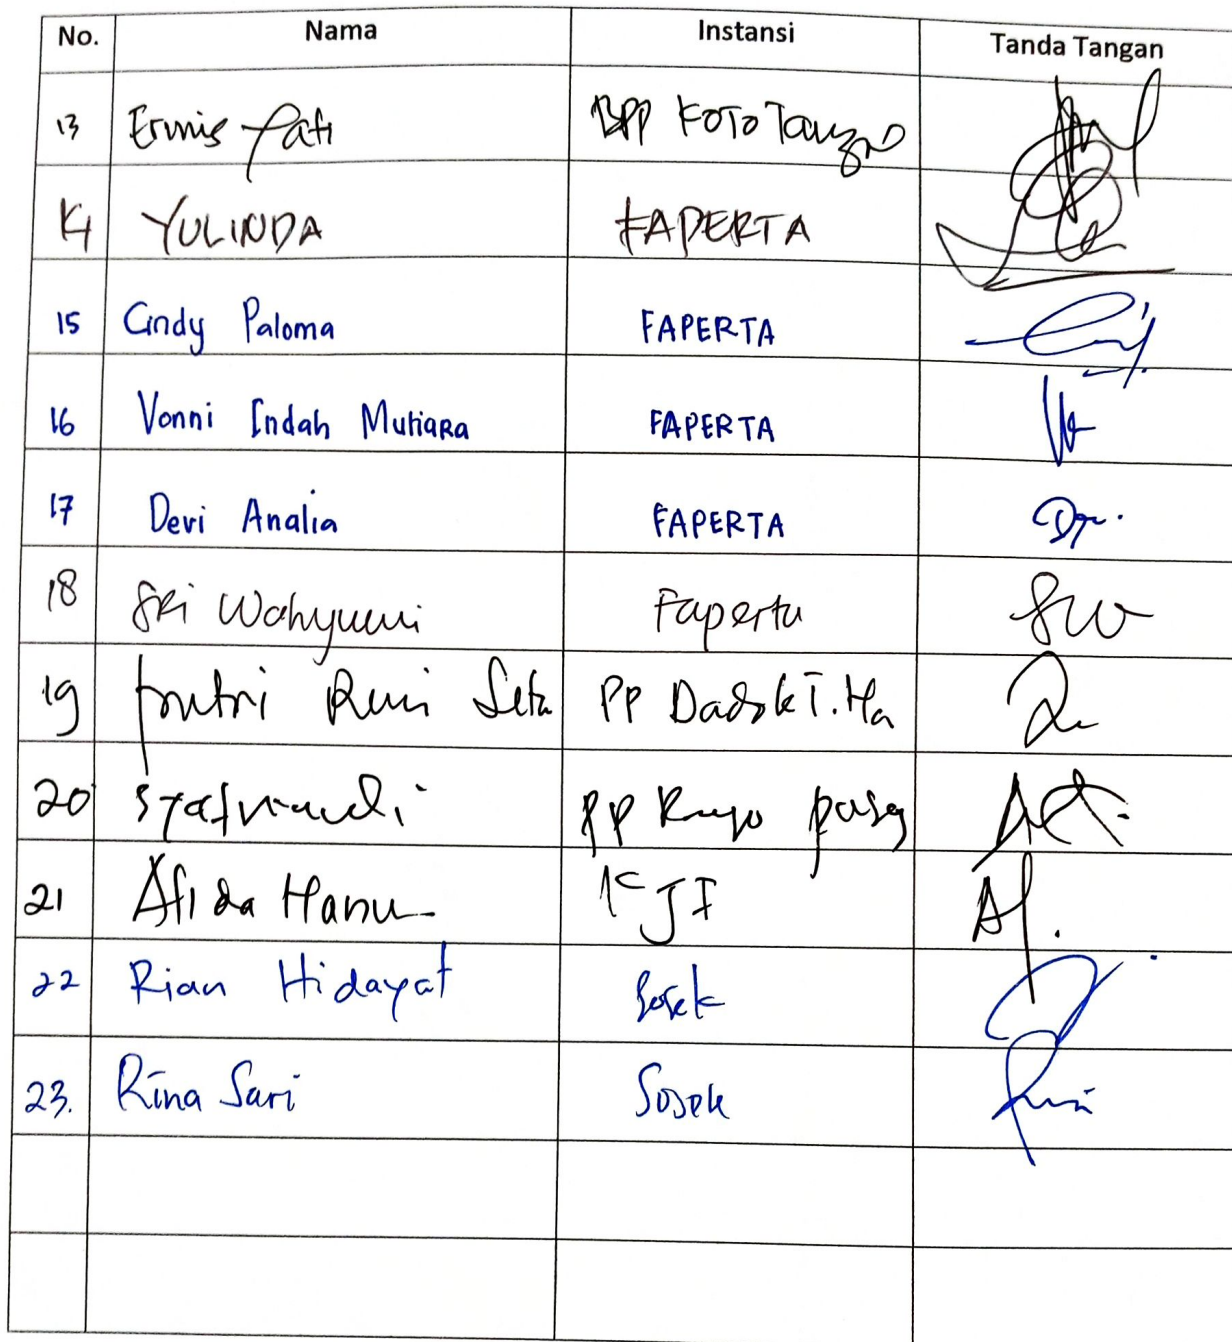 No. Nama Instansi Tanda Tangan
13 Ermis Yati BPP KOTO Tangah
14 YULINDA FAPERTA
15 Cindy Paloma FAPERTA
16 Vonni Indah Mutiara FAPERTA
17 Devi Analia FAPERTA
18 Sri Wahyuni Faperta SW
19 Putri Reni PP
20 Syafruadi PP
21 Afida Hanu KJF Af.
22 Rian Hidayat Sosek
23. Rina Sari Sosek